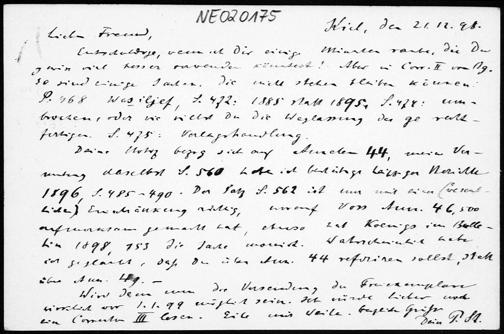 NE020175
Kiel, den 21.12.98.
Lieber Freund,
Entschuldige, wenn ich Dir einige Minuten raube, die Du
gewiss viel besser anwenden könntest! Aber in Corr. II von Bg.
50 sind einige Sachen, die nicht stehen bleiben können:
P. 468 Wasiljef, S. 472: 1885 statt 1895, S. 474: um-
brochen, oder wie willst Du die Weglassung des ge recht-
fertigen. S. 475: Verlagshandlung.
Deine Notiz bezog sich auf Annalen 44, meine Ver-
mutung daselbst S. 560 habe ich Berichte
1896, S. 485-490. Der Satz S. 562 ist nur mit einer
Einschränkung richtig, worauf Voss Ann. 46, 500
aufmerksam gemacht hat, ebenso hat Koenigs im Bulle-
tin 1898, 153 die Sache monirt. Wahrscheinlich habe
ich geglaubt, dass Du über Ann. 44 referiren sollst, statt
über Ann. 49. –
Wird denn nun die Versendung der Freiexemplare
wirklich vor 1.1.99 möglich sein. Ich würde lieber noch
ein Correctur III lesen. Eile mit Weile. Grüße
Dein P. St.